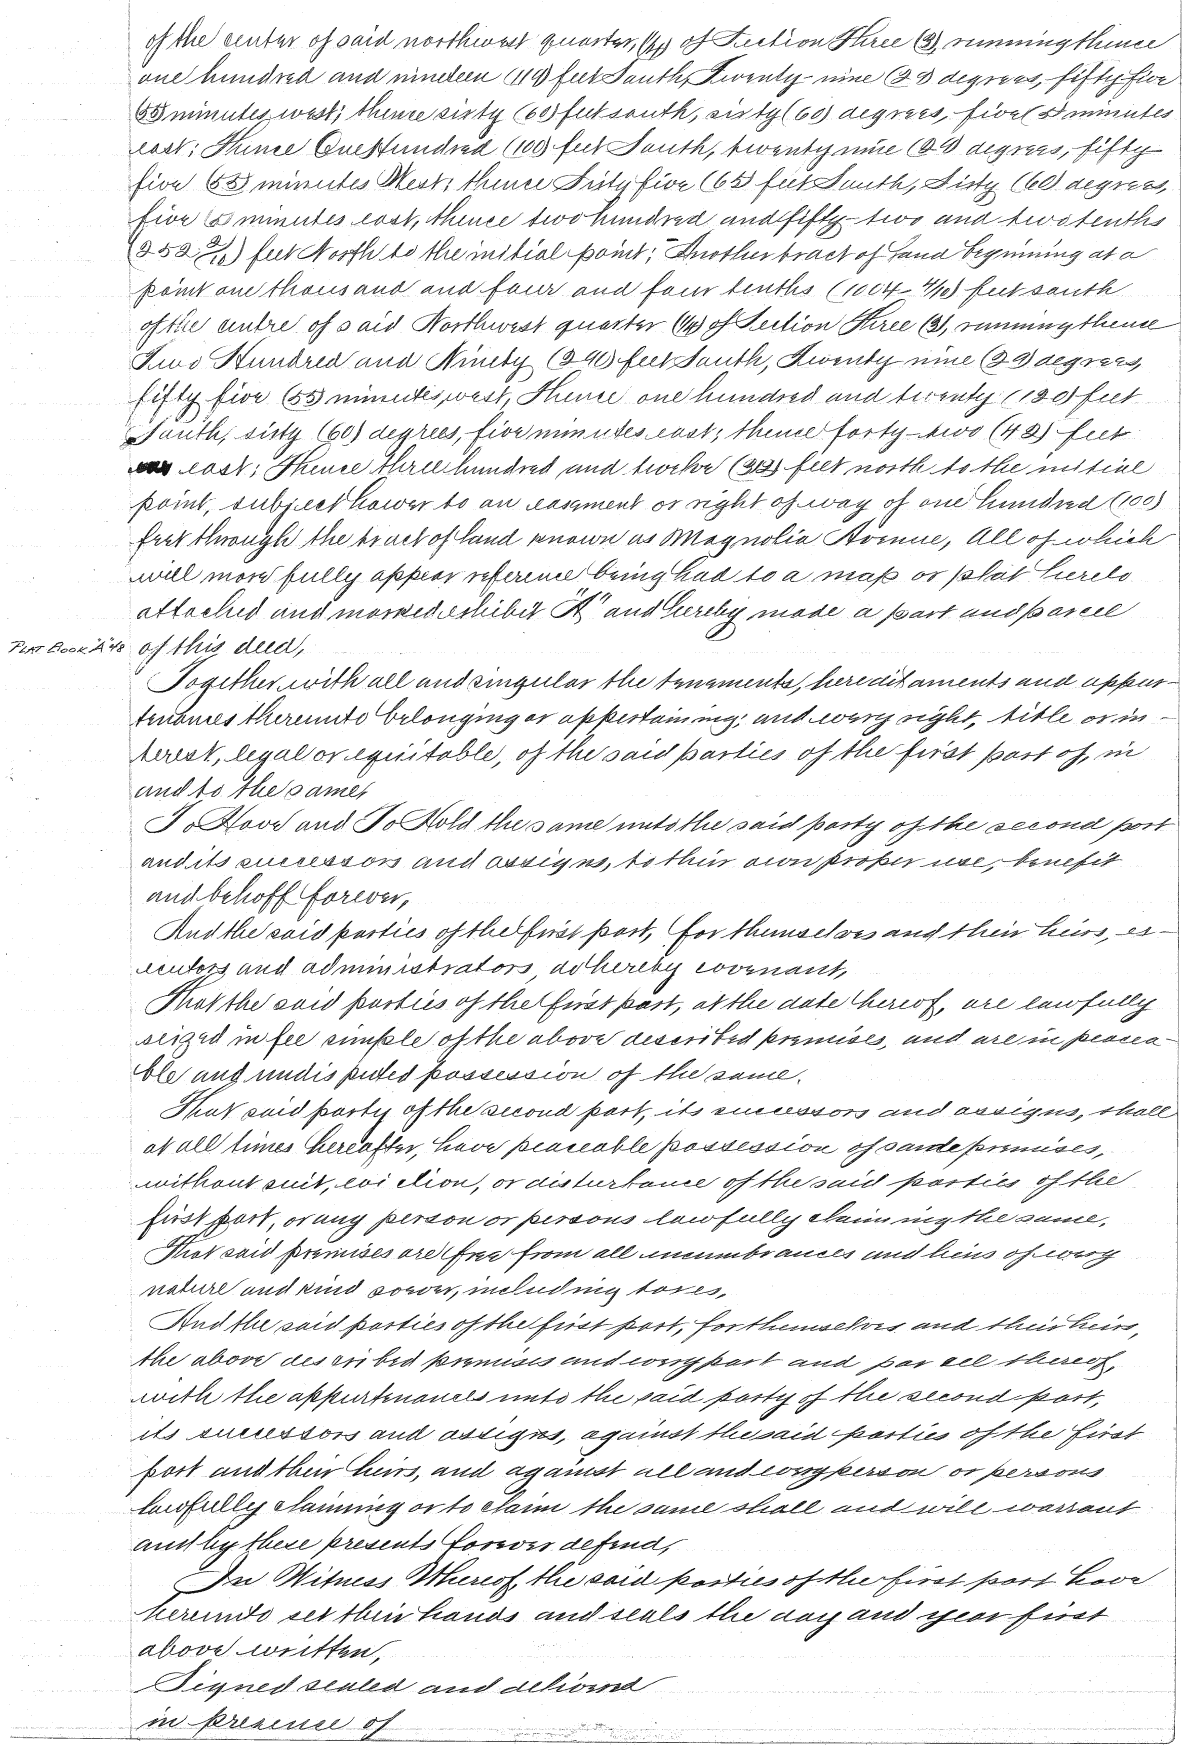 of the center of said northwest quarter, (1/4) of Section Three (3), running thence
one hundred and nineteen (119) feet South, Twenty-nine (29) degrees, fifty five
(55) minutes, west; thence sixty (60) feet south, sixty (60) degrees, five (5) minutes
east; Thence One Hundred (100) feet South, twenty nine (29) degrees, fifty
five (55) minutes West; thence Sixty five (65) feet South, Sixty (60) degrees,
five (5) minutes east, thence two hundred and fifty-two and two tenths
(252 2/10) feet North to the initial point; Another tract of land beginning at a
point one thousand and four and four tenths (1004 4/10) feet south
of the centre of said Northwest quarter (1/4) of Section Three (3), running thence
Two Hundred and Ninety (290) feet South, Twenty nine (29) degrees,
fifty five (55) minutes, west, Thence one hundred and twenty (120) feet
South, sixty (60) degrees, five minutes east; thence forty-two (42) feet
east; Thence three hundred and twelve (312) feet north to the initial
point, subject hower to an easement or right of way of one hundred (100)
feet through the tract of land known as Magnolia Avenue, All of which
will more fully appear reference being had to a map or plat hereto
attached and marked exhibit "A" and hereby made a part and parcel
PLAT BOOK "A" 48 of this deed,
Together with all and singular the tenements, hereditaments and appur-
tenances thereunto belonging or appertaining; and every right, title or in-
terest, legal or equitable, of the said parties of the first part of, in
and to the same,
To Have and To Hold the same unto the said party of the second part
and its successors and assigns, to their own proper use, benefit
and behoff forever,
And the said parties of the first part, for themselves and their heirs, ex-
ecutors and administrators, do hereby covenant,
That the said parties of the first part, at the date hereof, are lawfully
seized in fee simple of the above described premises, and are in peacea-
ble and undisputed possession of the same.
That said party of the second part, its successors and assigns, shall
at all times hereafter, have peaceable possession of saide premises,
without suit, eviction, or disturbance of the said parties of the
first part, or any person or persons lawfully claiming the same.
That said premises are free from all encumbrances and liens of every
nature and kind soever, including taxes,
And the said parties of the first part, for themselves and their heirs,
the above described premises and every part and parcel thereof,
with the appurtenances unto the said party of the second part,
its successors and assigns, against the said parties of the first
part and their heirs, and against all and every person or persons
lawfully claiming or to claim the same shall and will warrant
and by these presents forever defend,
In Witness Whereof, the said parties of the first part have
hereunto set their hands and seals the day and year first
above written,
Signed sealed and delivered
in presence of